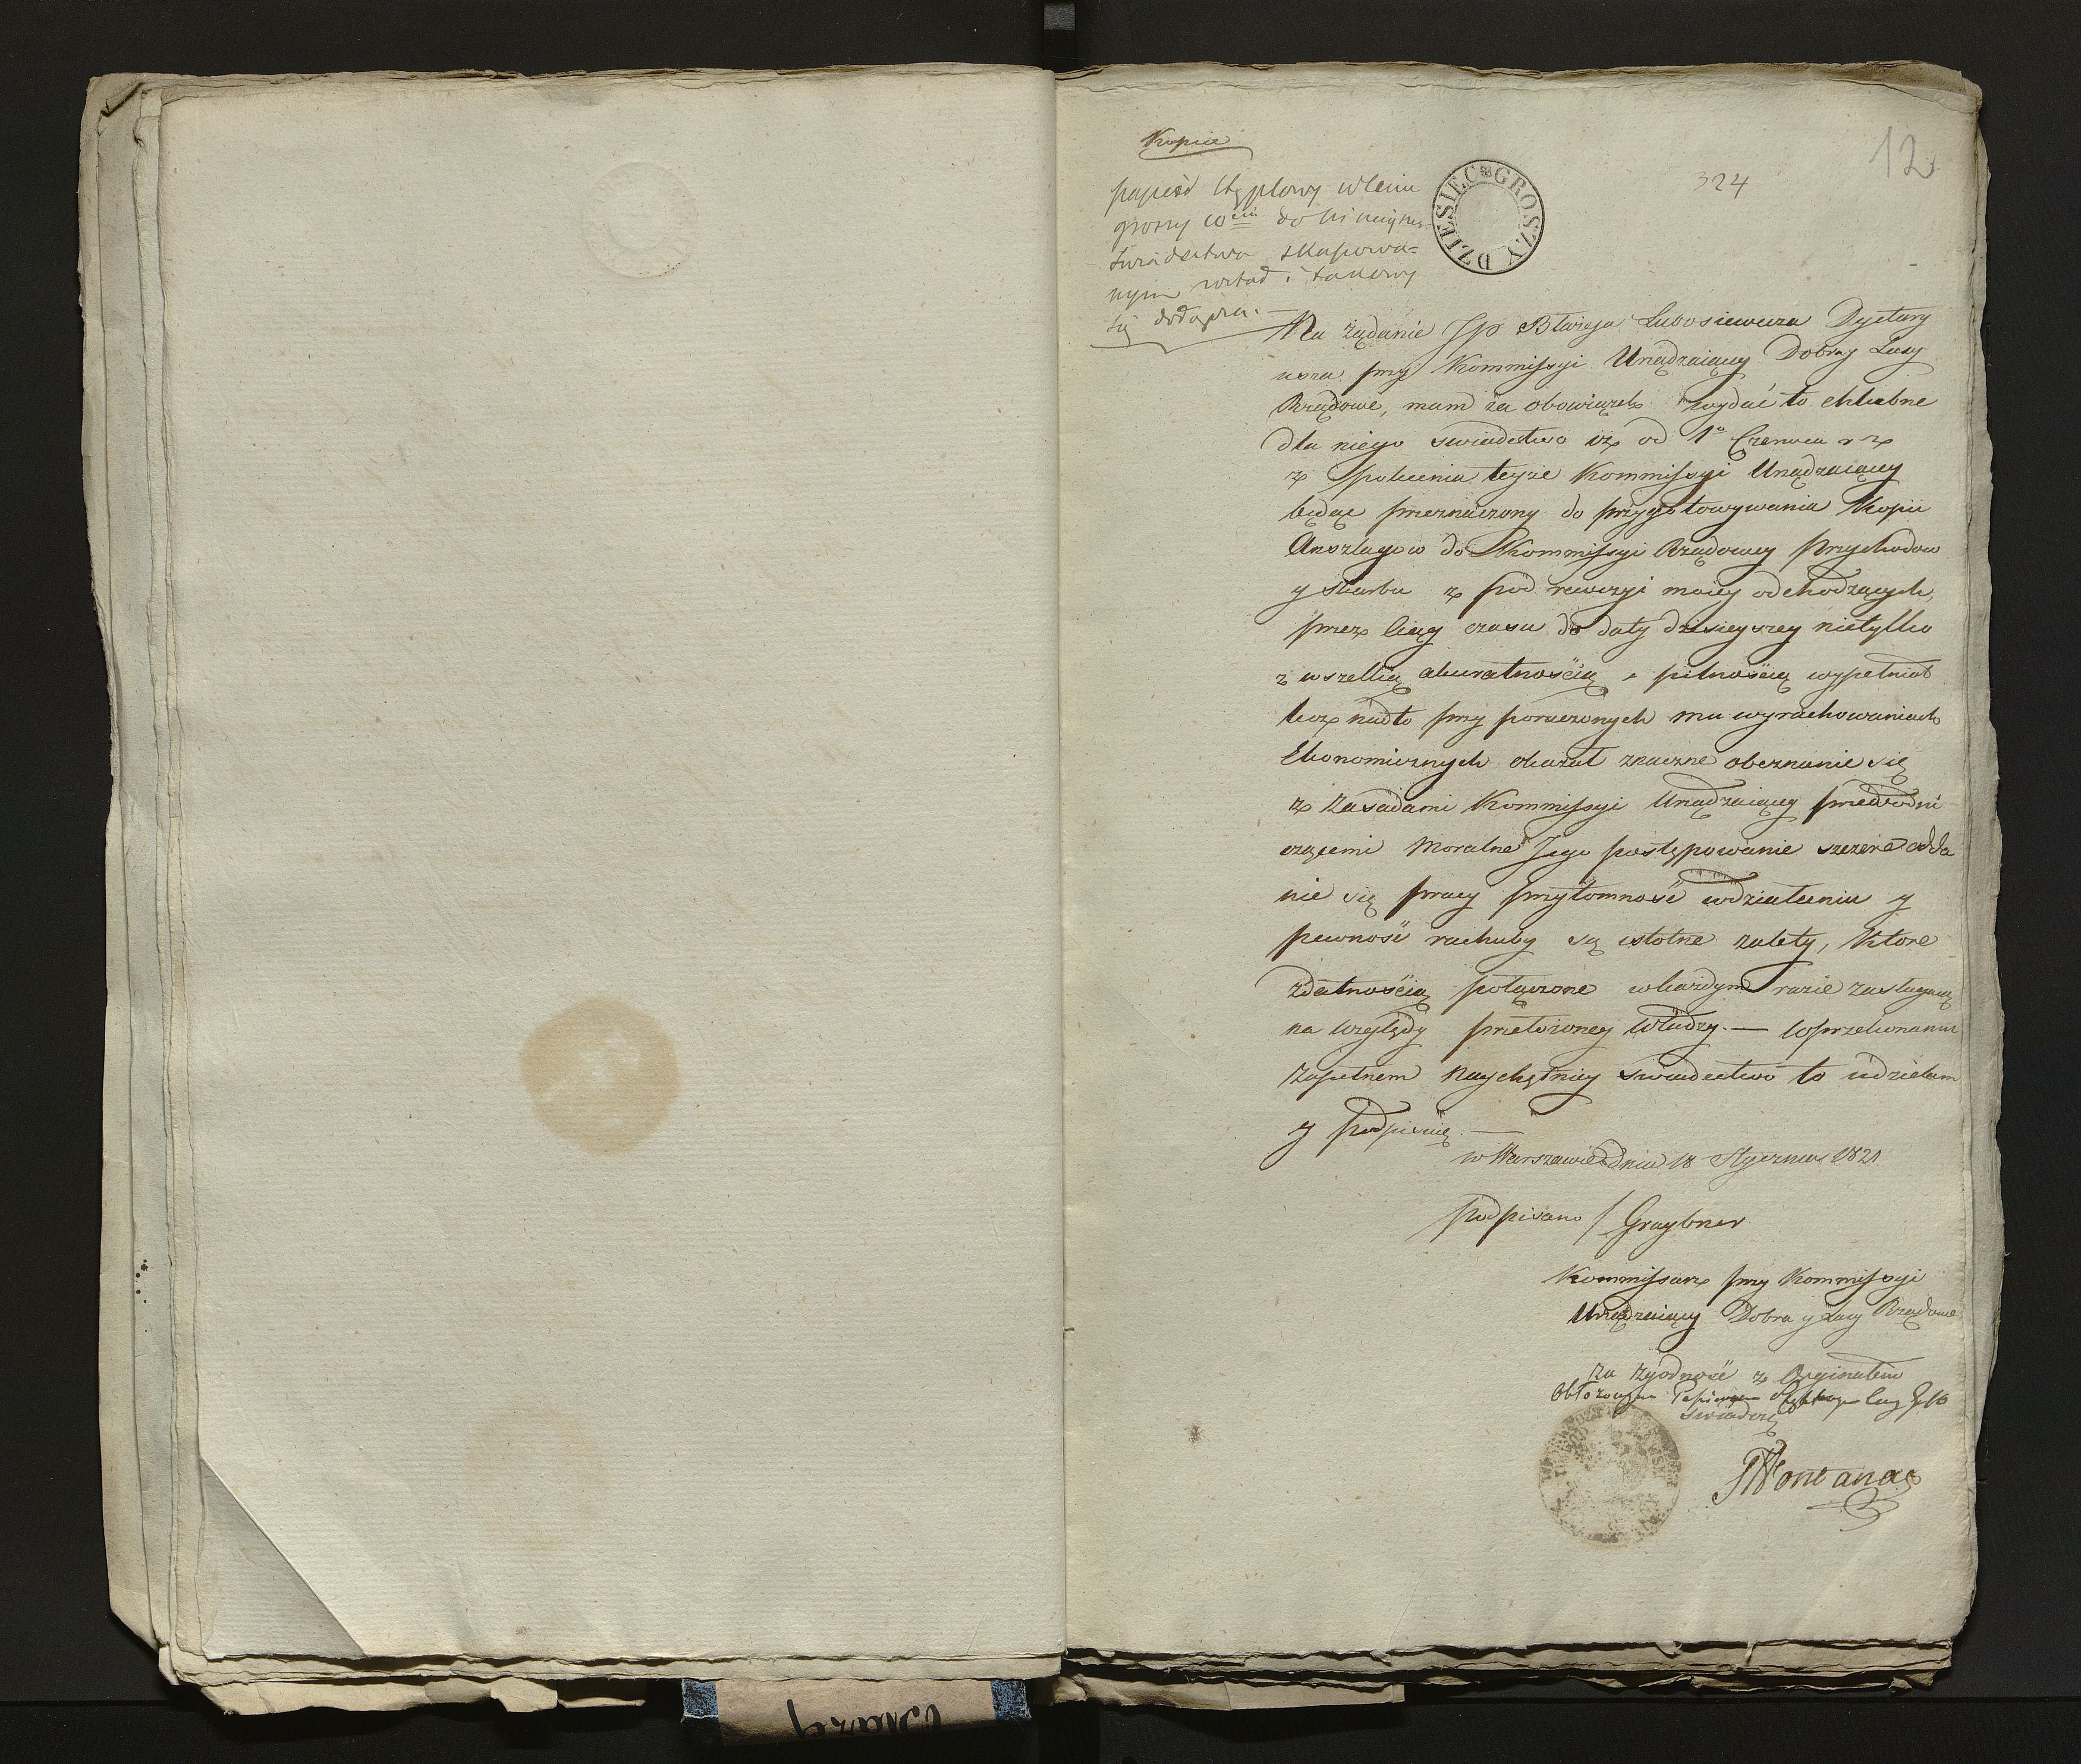 Kopia
papier stęplowy w Cenie
groszy 10ciu do ninieyszeg
świadectwa skasowa=
nym został i takowy
się dołącza. —
DZIESIĘC GROSZY
324
12
Na żądanie JP Błażeja Lubosiewicza Dyetary
usza przy Kommissyi Urządzaiącey Dobra y Lasy
Rządowe, mam za obowiązek wydać to chlubne
dla niego swiadectwo iż od 1o Czerwca r z
z polecenia teyże Kommissyi Urządzaiącey
będąc przeznaczony do przygotowywania Kopii
Anszlagow do Kommissyi Rządowey Przychodow
y Skarbu z pod rewizyi moiey odchodzących,
przez ciąg czasu do daty dzisieyszey nietylko
z wszelką akuratnoscią i pilnoscią wypełniał
lecz nadto przy poruczonych mu wyrachowaniach
Ekonomicznych okazał znaczne obeznanie się
z Zasadami Kommissyi Urządzaiącey przewodni
czącemi Moralne Jego postępowanie szczere odda
nie się pracy przytomność w działaniu y
pewność rachuby są istotne zalety, ktore
zdatnoscią połączone w każdym razie zasługuią
na względy przełożoney Władzy. — W przekonaniu
zupełnem naychętniey swiadectwo to udzielam
y podpisuię. —
w Warszawie dnia 18 Stycznia 1821
podpisano / Graybner
Kommissarz przy Kommissyi
Urządzaiącey Dobra y Lasy Rządowe
Za zgodność z Oryginałem
Obłożonym Papierem
świadczę
Fontana